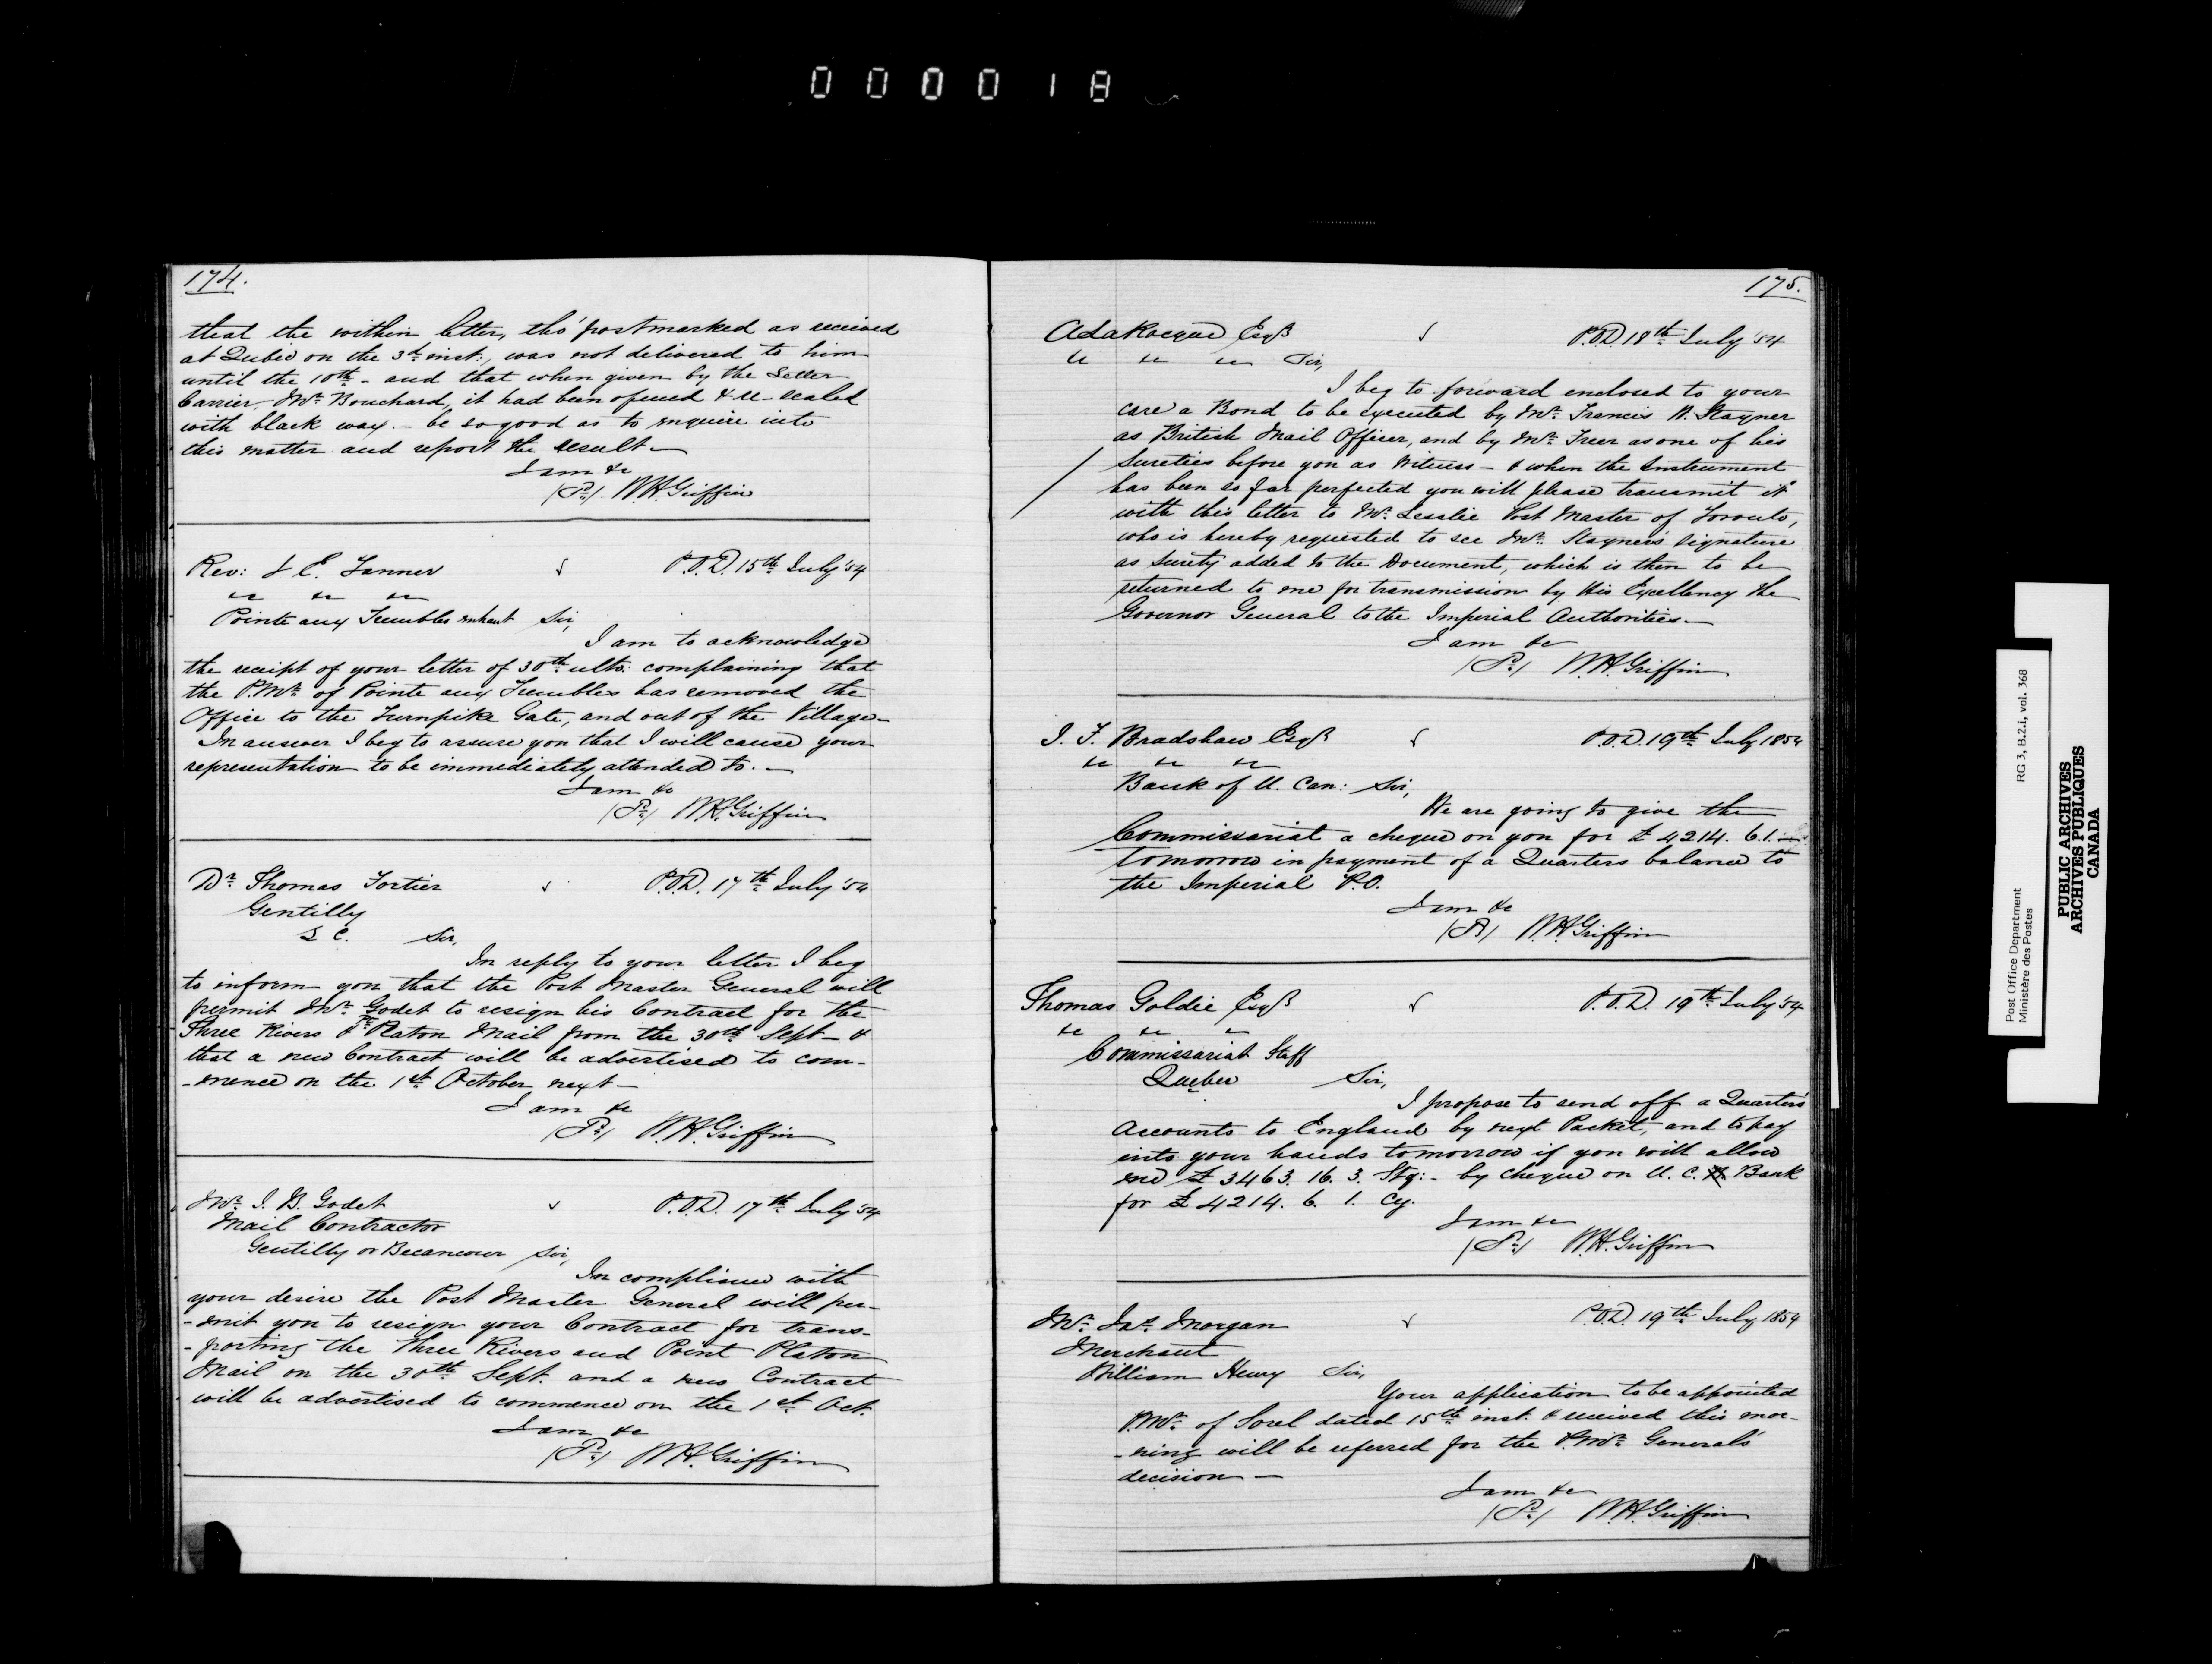 000018
174.
that the within letter, tho' postmarked as received
at Quebec on the 3d inst:, was not delivered to him
until the 10th - and that when given by the Letter
Carrier, Mr. Bouchard, it had been opened & re-sealed
with black wax. - be so good as to enquire into
this matter and report the result -
I am &c
W.H. Griffin
Rev: J E. Tanner P.O.D. 15th July '54
" " "
Pointe aux Trembles enhaut Sir,
I am to acknowledge
the receipt of your letter of 30th ulto: complaining that
the P.Mr. of Pointe aux Trembles has removed the
Office to the Turnpike Gate, and out of the Village -
In answer I beg to assure you that I will cause your
representation to be immediately attended to. -
I am &c
W.H. Griffin
Dr. Thomas Fortier P.O.D. 17th July '54
Gentilly
L C. Sir,
In reply to your letter I beg
to inform you that the Post Master General will
permit Mr. Godet to resign his Contract for the
Three Rivers & Pt. Platon Mail from the 30th Sept - &
that a new Contract will be advertised to com-
-mence on the 1st October next -
I am &c
W.H. Griffin
Mr. J. B. Godet P.O.D. 17th July '54
Mail Contractor
Gentilly or Becancour Sir,
In compliance with
your desire the Post Master General will per-
-mit you to resign your Contract for trans-
-porting the Three Rivers and Point Platon
Mail on the 30th Sept. and a new Contract
will be advertised to commence on the 1st Oct.
I am &c
W.H. Griffin
175.
A LaRocque Esqr P.O.D. 18th July '54
" " " Sir,
I beg to forward enclosed to your
care a Bond to be executed by Mr. Francis N. Stayner
as British Mail Officer, and by Mr. Freer as one of his
Sureties before you as Witness - & when the Instrument
has been so far perfected you will please transmit it
with this letter to Mr. Lesslie Post Master of Toronto,
who is hereby requested to see Mr. Stayner's signature
as surety added to the Document, which is then to be
returned to me for transmission by His Excellency the
Governor General to the Imperial Authorities. -
I am &c
W.H. Griffin
J. F. Bradshaw Esqr P.O.D. 19th July 1854
" " "
Bank of U. Can: Sir,
We are going to give the
Commissariat a cheque on you for £4214. 6. 1. -
tomorrow in payment of a Quarters balance to
the Imperial P.O.
I am &c
W.H. Griffin
Thomas Goldie Esqr P.O.D. 19th July '54
" " "
Commissariat Staff
Quebec Sir,
I propose to send off a Quarter's
Accounts to England by next Packet, and to pay
into your hands tomorrow if you will allow
me £3463. 16. 3. Stg: - by cheque on U. C. Bank
for £4214. 6. 1. Cy.
I am &c
W.H. Griffin
Mr. Jas. Morgan P.O.D. 19th July 1854
Merchant
William Henry Sir,
Your application to be appointed
P.Mr. of Sorel dated 15th inst. & received this mor-
-ning will be referred for the P.Mr. General's
decision -
I am &c
W.H. Griffin
Post Office Department RG 3, B.2.i, vol. 368
Ministère des Postes
PUBLIC ARCHIVES
ARCHIVES PUBLIQUES
CANADA